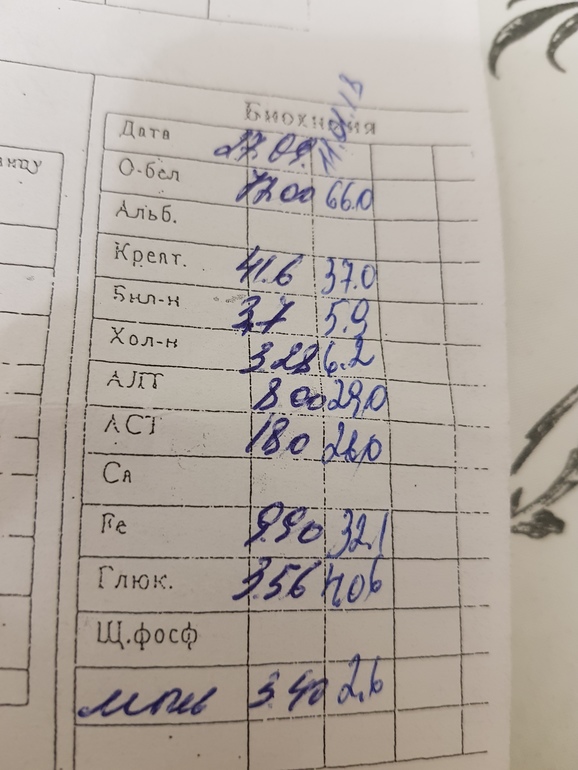 Биохимия
Дата 27.09
О-бел 72.00 66.0
Альб.
Креат. 41.6 37.0
Бил-н 3.7 5.9
Хол-н 3.28 6.2
АЛТ 8.00 29.0
АСТ 18.0 26.0
Ca
Fe 9.90 32.1
Глюк. 3.56 4.06
Щ.фосф
моч 3.40 2.6